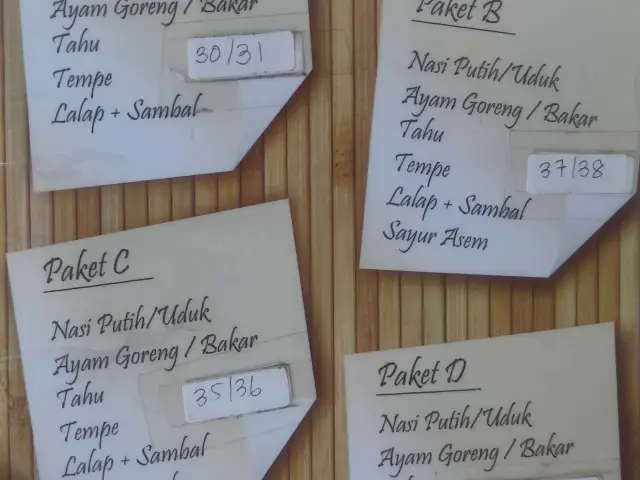 Ayam Goreng / Bakar
Tahu
30/31
Tempe
Lalap + Sambal
Paket B
Nasi Putih/Uduk
Ayam Goreng / Bakar
Tahu
Tempe
37/38
Lalap + Sambal
Sayur Asem
Paket C
Nasi Putih/Uduk
Ayam Goreng / Bakar
Tahu
35/36
Tempe
Lalap + Sambal
Paket D
Nasi Putih/Uduk
Ayam Goreng / Bakar